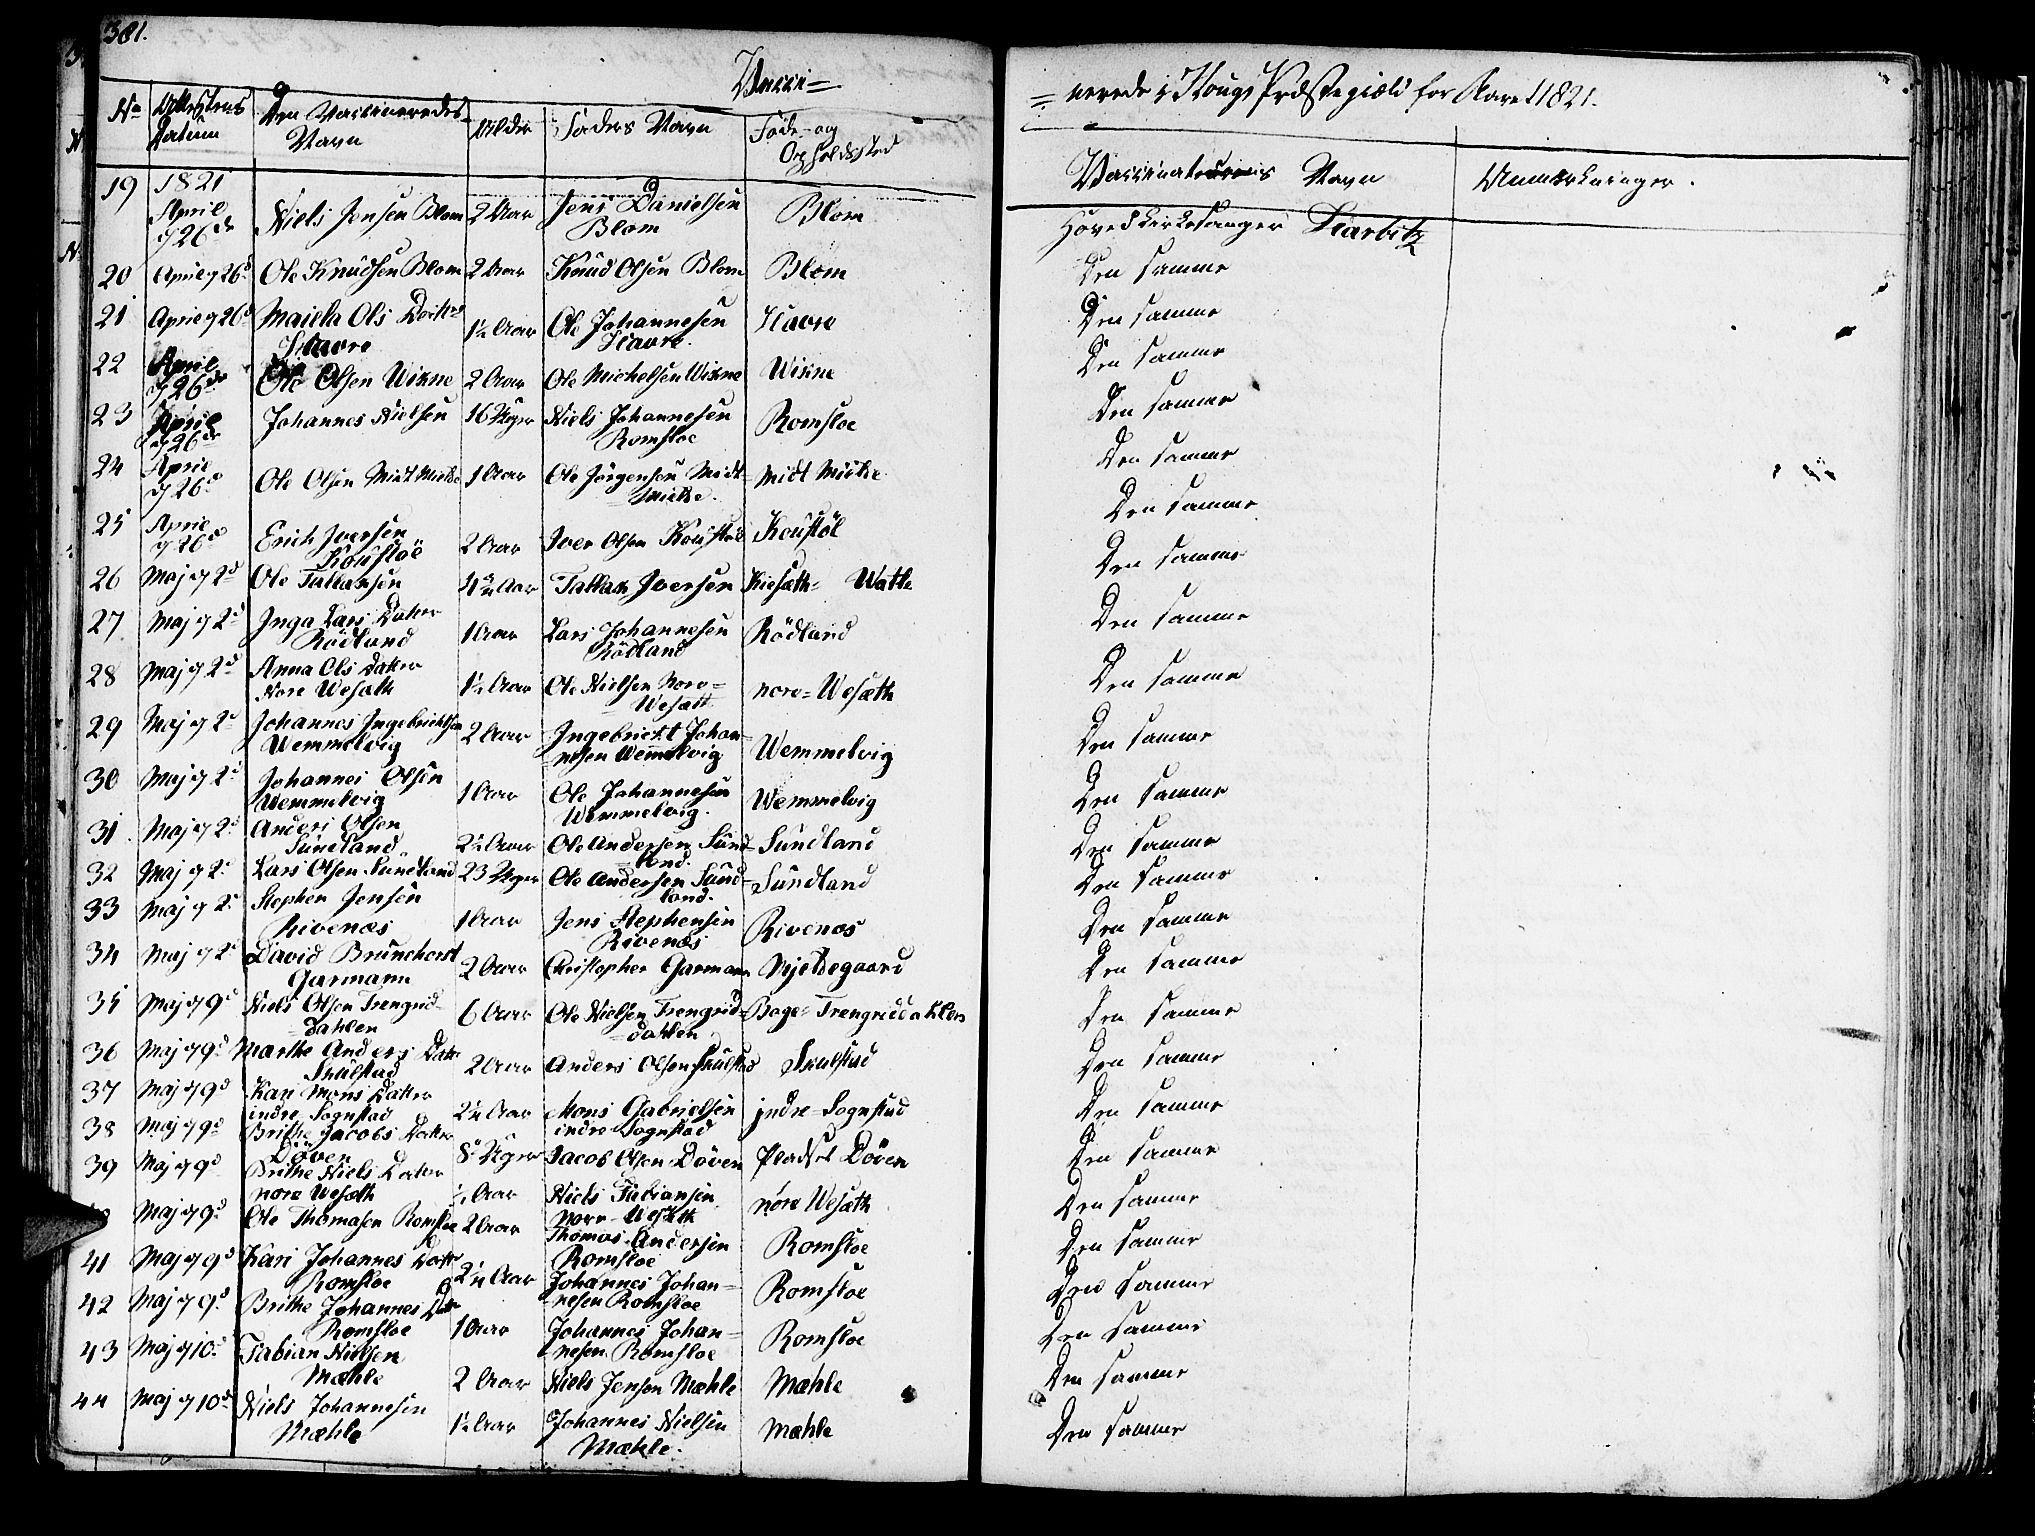 381.
Vacci=
=nerede i Hougs Præstegield for Aaret 1821.
No Attestens Datum Den Vaccineredes Navn Alder Faders Navn Føde- og Opholdssted Vaccinateurens Navn Anmærkninger.
19 1821 April d 26de Niels Jensen Blom 2 Aar Jens Danielsen Blom Blom Hovedkirkesanger
20 April d 26d Ole Knudsen Blom 2 Aar Knud Olsen Blom Blom Den samme
21 April d 26d Ols Datter 1½ Aar Ole Johannesen Den samme
22 April d 26de Ole Olsen Wikne 2 Aar Ole Michelsen Wikne Wikne Den samme
23 April d 26de Johannes Nielsen 16 Uger Niels Johannesen Romsloe Romsloe Den samme
24 April d 26d Ole Olsen Midt Mielde 1 Aar Ole Jørgensen Midt Mielde. Midt Mielde Den samme
25 April d 26d Erich Iversen 2 Aar Iver Olsen Den samme
26 Maj d 2d Ole 1½ Aar Iversen Watle Den samme
27 Maj d 2d Inga Lars Datter Rödland 1 Aar Lars Johannesen Rödland Rödland Den samme
28 Maj d 2d Anna Ols Datter Nore Wesæth 1½ Aar Ole Nielsen Nore=Wesætt nore=Wesæth Den samme
29 Maj d 2d Johannes Ingebrichtsen Wemmelvig 2 Aar Ingebricht Johan=nesen Wemmelvig Wemmelvig Den samme
30 Maj d 2d Johannes Olsen Wemmelvig 1 Aar Ole Johannesen Wemmelvig. Wemmelvig Den samme
31. Maj d 2d Anders Olsen Sundland 2½ Aar Ole Andersen Sund=land. Sundland Den samme
32 Maj d 2d Lars Olsen Sundland 23 Uger Ole Andersen Sund=land. Sundland Den samme
33 Maj d 2d Stephen Jensen Rivenæs 1 Aar Jens Stephensen Rivenæs Rivenæs Den samme
34 Maj d 2d David Brunchorst Garmann 2 Aar Christopher Garmann Mjeldegaard Den samme
35 Maj d 9d Niels Olsen Trengrid=dahlen 6 Aar Ole Nielsen Trengrid=dahlen Trengriddahlen Den samme
36 Maj d 9d Marthe Anders Datr Skulstad 2 Aar Anders Olsen Skulstad Skulstad Den samme
37 Maj d 9d Kari Mons Datter indre Sognstad 2½ Aar Mons Gabrielsen indre Sognstad indre-Sognstad Den samme
38 Maj d 9d Brithe Jacobs Datter Döven 8 Uger Jacob Olsen Döven Pladset Döven Den samme
39 Maj d 9d Brithe Niels Dater nore Wesæth ½ Aar Niels Fabiansen nore-Wesæth nöre Wesæth Den samme
Maj d 9d Ole Thomasen Romsloe 2 Aar Thomas Andersen Romsloe Romsloe Den samme
41 Maj d 9d Kari Johannes Dattr Romsloe 2½ Aar Johannes Johan=nesen Romsloe Romsloe Den samme
42 Maj d 9d Brithe Johannes Datr Romsloe 1 Aar Johannes Johan=nesen Romsloe Romsloe Den samme
43 Maj d 10d Fabian Nielsen Mæhle 2 Aar Niels Jensen Mæhle Mæhle Den samme
44 Maj d 10d Niels Johannesen Mæhle 1½ Aar Johannes Nielsen Mæhle. Mæhle Den samme